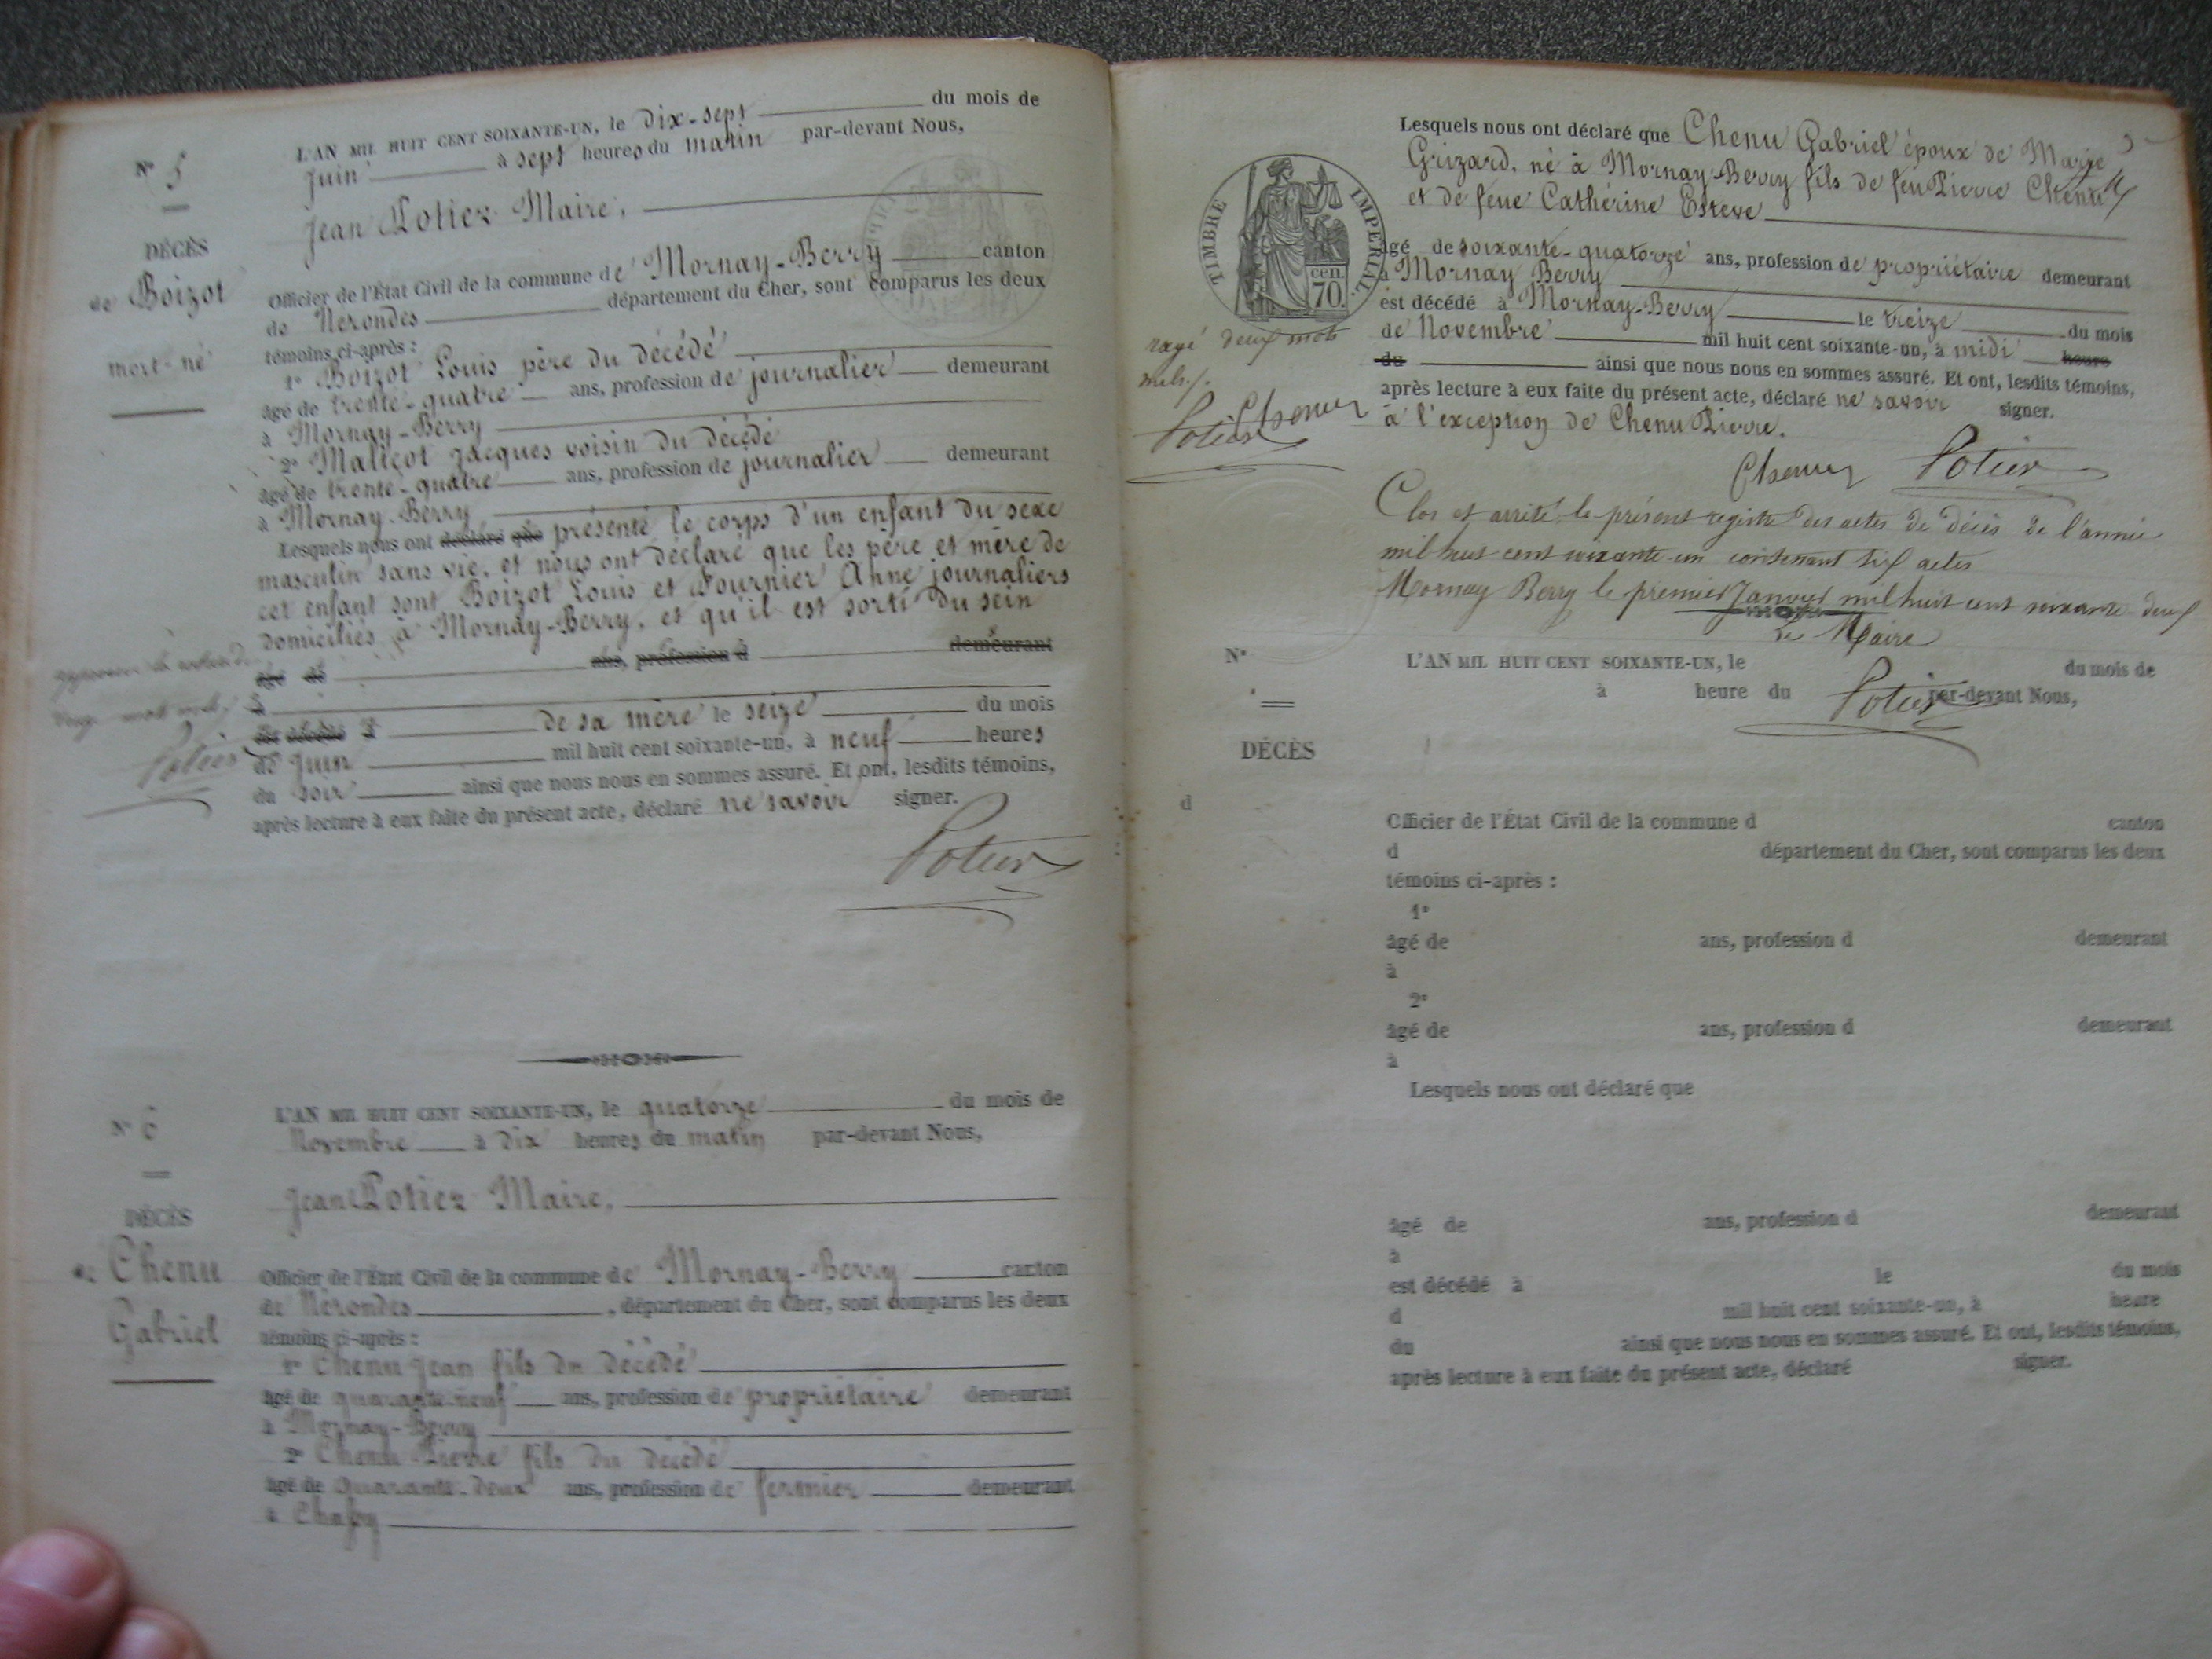 N° 5
DÉCÈS
de Boizot
mort-né
L'AN MIL HUIT CENT SOIXANTE-UN, le dix-sept du mois de
Juin à sept heures du matin par-devant Nous,
Jean Potier Maire,
Officier de l'État Civil de la commune de Mornay-Berry canton
de Nérondes département du Cher, sont comparus les deux
témoins ci-après :
1° Boizot Louis père du décédé
âgé de trente-quatre ans, profession de journalier demeurant
à Mornay-Berry
2° Malicot Jacques voisin du décédé
âgé de trente-quatre ans, profession de journalier demeurant
à Mornay-Berry
Lesquels nous ont déclaré que présenté le corps d'un enfant du sexe
masculin sans vie, et nous ont déclaré que les père et mère de
cet enfant sont Boizot Louis et Fournier Anne journaliers
domiciliés à Mornay-Berry, et qu'il est sorti du sein
âgé de ans, profession d demeurant
à
est décédé à de sa mère le seize du mois
de Juin mil huit cent soixante-un, à neuf heures
du soir ainsi que nous nous en sommes assuré. Et ont, lesdits témoins,
après lecture à eux faite du présent acte, déclaré ne savoir signer.
Potier
mots
Potier
N° 6
DÉCÈS
de Chenu
Gabriel
L'AN MIL HUIT CENT SOIXANTE-UN, le quatorze du mois de
Novembre à dix heures du matin par-devant Nous,
Jean Potier Maire,
Officier de l'État Civil de la commune de Mornay-Berry canton
de Nérondes, département du Cher, sont comparus les deux
témoins ci-après :
1° Chenu Jean fils du décédé
âgé de quarante-neuf ans, profession de propriétaire demeurant
à Mornay-Berry
2° Chenu Pierre fils du décédé
âgé de quarante-deux ans, profession de fermier demeurant
à
Lesquels nous ont déclaré que Chenu Gabriel époux de Marie
Grizard, né à Mornay-Berry fils de feu Pierre Chenu
et de feue Cathérine Esteve
âgé de soixante-quatorze ans, profession de propriétaire demeurant
à Mornay Berry
est décédé à Mornay-Berry le treize du mois
de Novembre mil huit cent soixante-un, à midi heure
du ainsi que nous nous en sommes assuré. Et ont, lesdits témoins,
après lecture à eux faite du présent acte, déclaré ne savoir signer.
à l'exception de Chenu Pierre.
Chenu Potier
TIMBRE IMPÉRIAL
70 cen.
rayé deux mots
nuls
Chenu
Potier
Clos et arrêté le présent registre des actes de décès de l'année
mil huit cent soixante-un contenant six actes
Mornay Berry le premier Janvier mil huit cent soixante deux
Le Maire
Potier
N°
DÉCÈS
d
L'AN MIL HUIT CENT SOIXANTE-UN, le du mois de
à heure du par-devant Nous,
Officier de l'État Civil de la commune d canton
d département du Cher, sont comparus les deux
témoins ci-après :
1°
âgé de ans, profession d demeurant
à
2°
âgé de ans, profession d demeurant
à
Lesquels nous ont déclaré que
âgé de ans, profession d demeurant
à
est décédé à le du mois
d mil huit cent soixante-un, à heure
du ainsi que nous nous en sommes assuré. Et ont, lesdits témoins,
après lecture à eux faite du présent acte, déclaré signer.